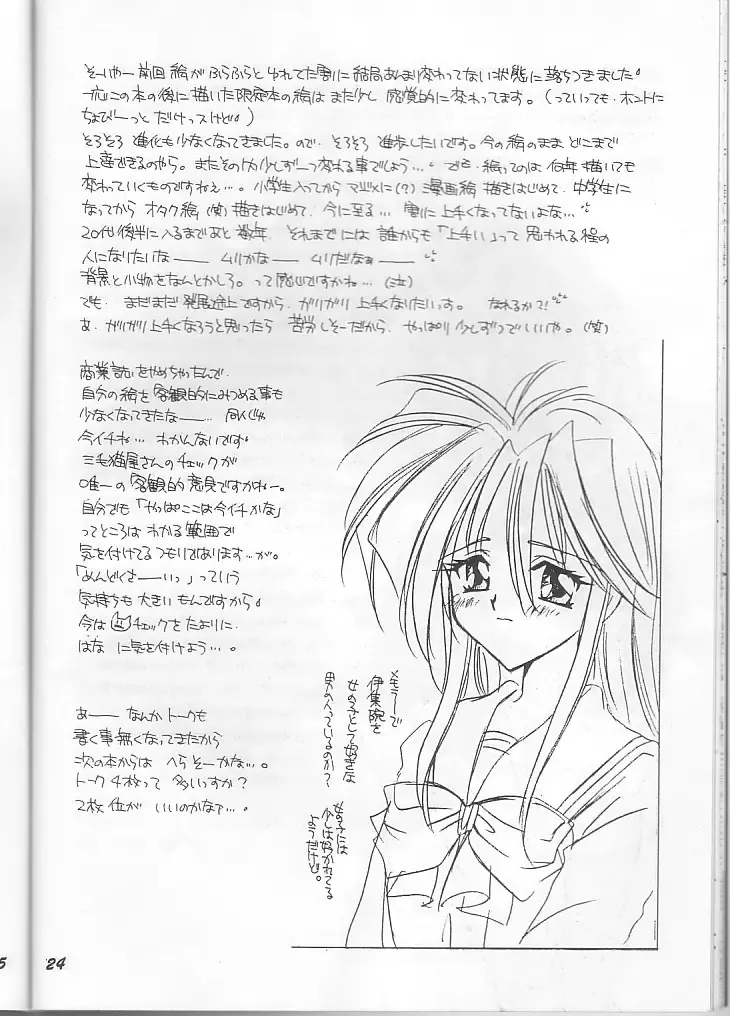 そーいやー前回 絵が ふらふらと ゆれてた割に 結局あんまり変わってない 状態に 落ちつきました。
一応この本の後に 描いた 限定本の絵は また少し 感覚的に 変わってます。(っていっても・ホントに
ちょびーっと だけっスけど。)
そろそろ 進化も 少なくなってきました。ので、そろそろ 進歩したいです。今の絵のまま どこまで
上達できるのやら。またその内 少しずーつ変わる事でしょう…。でも・絵っての は 何年 描いても
変わっていくものですねぇ…。小学生入ってから マジメに(?) 漫画絵 描きはじめて、中学生に
なってから オタク絵(笑)描きはじめて、今に至る… 割に 上手くなってないよな…
20代後半に入るまであと 数年、それまでには 誰からも「上手い」って 思われる程の
人になりたいなー ムリかなー ムリだなぁー
背景と小物をなんとかしろ。って感じですかね…(泣)
でも、まだまだ 発展途上ですから、ガリガリ 上手くなりたいっす。なれるか?!
あ、ガリガリ上手くなろうと思ったら 苦労しそーだから、やっぱり 少しずつでいいや。(笑)
商業誌をやめちゃったんで
自分の絵を 客観的にみつめる事も
少なくなってきたなー… 同人じゃ
今イチね… わかんないです。
三毛猫屋さんの チェックが
唯一の 客観的 意見ですかねー。
自分でも「やっぱここは今イチかな」
ってところは わかる 範囲で
気を付けてる つもりであります…が。
「めんどくさーいっ」っていう
気持ちも 大きい もんですから。
今は チェックを たよりに、
はな に気を付けよう…。
あー なんか トークも
書く事無くなってきたから
次の本からは へらそーかな…。
トーク 4枚って 多いっすか?
2枚 位が いいのかなァ…。
メモラーで
伊集院を
女の子として好きな
男の人っているのか?
女の子には
少しは好かれてる
ようだけど。
24
5